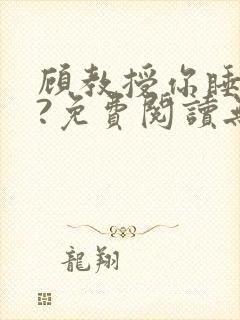 顧教授你睡
?免費閱讀無
龍翔